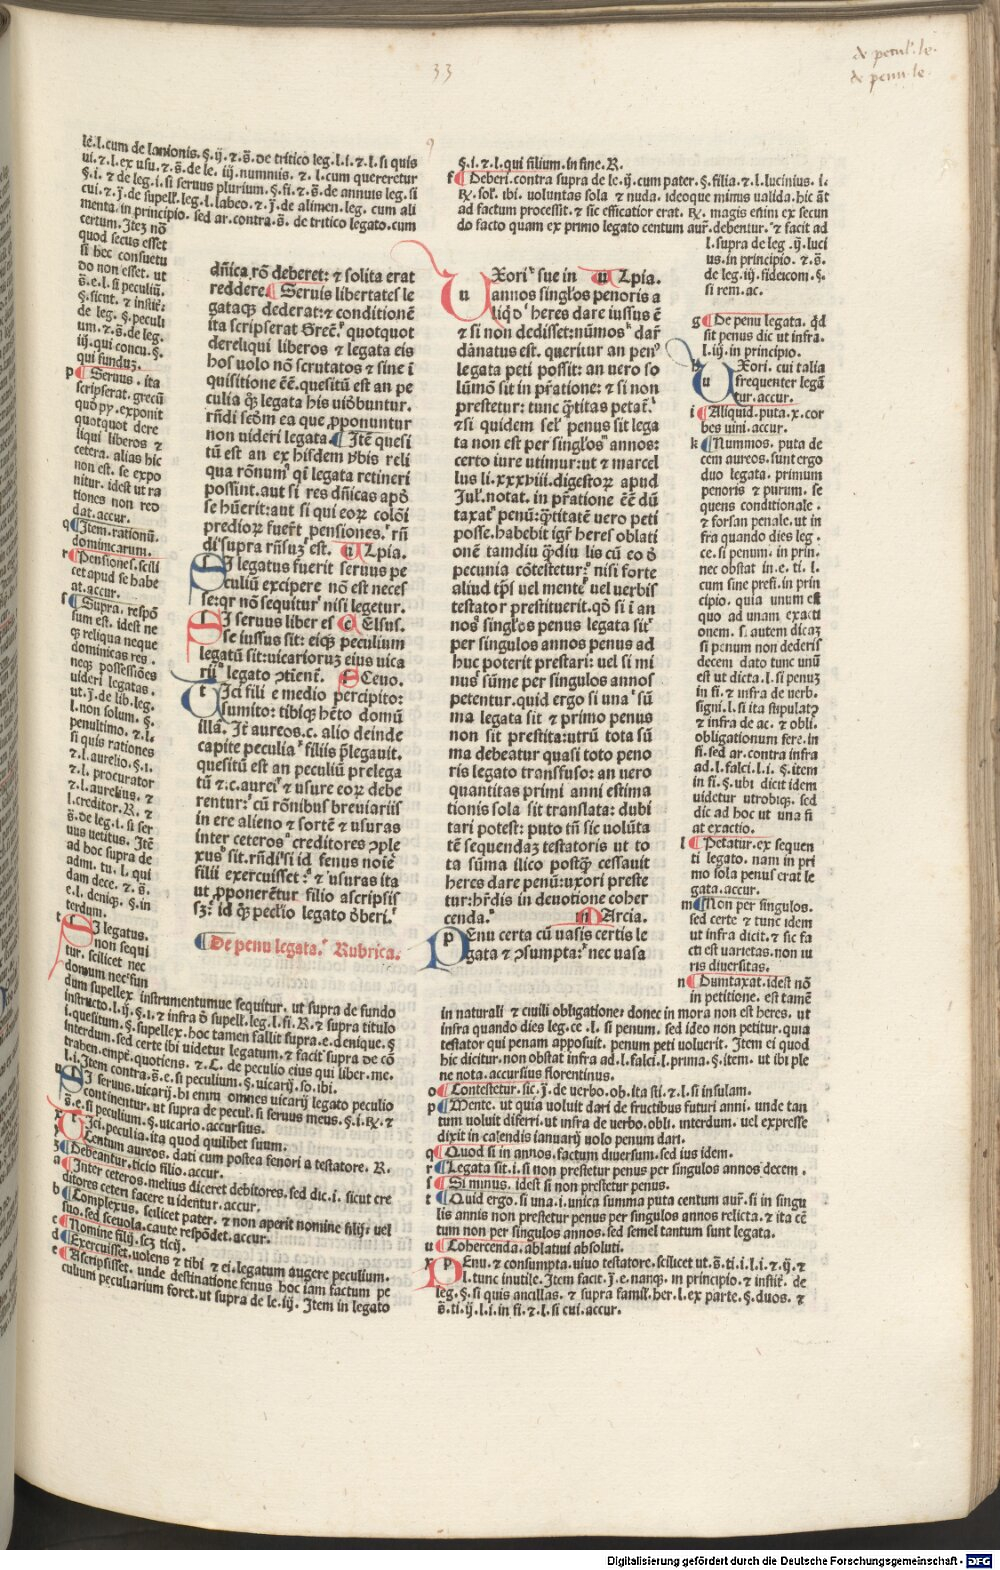 33
de pecul. le.
de penu. le.
le. l. cum de lanionis. §. ij. ⁊ .s̄. de tritico leg. l. i. ⁊ l. si quis
ui. ⁊ .l. ex usu. ⁊ .s̄. de le. iij. nummis. ⁊ .l. cum quereretur
§. i. ⁊ de leg. i. si seruus plurium. §. fi. ⁊ .s̄. de annuis leg. si
cui. ⁊ .j̄. de supell. leg. l. labeo. ⁊ .j̄. de alimen. leg. cum ali
menta. in principio. sed ar. contra. s̄. de tritico legato. cum
certum. Itez nō
quod secus esset
si hec consuetu
do non esset. ut
s̄. e. l. si peculiū.
§. sicut. ⁊ instit.
de leg. §. peculi
um. ⁊ .s̄. de leg.
iij. qui concu. §.
qui fundu.
p Seruus. ita
scripserat. grecū
quō py. exponit
quotquot dere
liqui liberos ⁊
cetera. alias hic
non est. se expo
nitur. idest ut ra
tiones non red
dat. accur.
q Item. rationū.
dominicarum.
r Pensiones. scili
cet apud se habe
at. accur.
s Supra. respō
sum est. idest ne
qꝫ reliqua neque
dominicas res.
neqꝫ possessiões
uideri legatas.
ut. j̄. de lib. leg.
l. non solum. §.
penultimo. ⁊ .l.
si quis rationes
⁊ .l. aurelio. §. i.
⁊ .l. procurator
⁊ .l. aurelius. ⁊
l. creditor. R. ⁊
s̄. de leg. i. si ser
uus uetitus. Itē
ad hoc supra de
admi. tu. l. qui
dam dece. ⁊ .s̄.
e. l. deniqꝫ. §. in
terdum.
t SI legatus.
non sequi
tur. scilicet nec
domum nec fun
dum supellex instrumentumue sequitur. ut supra de fundo
instructo. l. ij. §. i. ⁊ infra d̄ supell. leg. l. fi. R. ⁊ supra titulo
i. quesitum. §. supellex. hoc tamen fallit supra. e. denique. §
interdum. sed certe ibi uidetur legatum. ⁊ facit supra de cō
traben. empt. quotiens. ⁊ .C. de peculio eius qui liber. me.
l. i. Item contra. s̄. e. si peculium. §. uicarij. so. ibi.
u SI seruus. uicarij. hi enim omnes uicarij legato peculio
continentur. ut supra de pecul. si seruus meus. §. i. R. ⁊
s̄. e. si peculium. §. uicario. accursius.
x Tici. peculia. ita quod quilibet suum.
y Centum aureos. dati cum postea fenori a testatore. R.
z Debeantur. ticio filio. accur.
a Inter ceteros. melius diceret debitores. sed dic. i. sicut cre
ditores ceteri facere uidentur. accur.
b Complexus. scilicet pater. ⁊ non aperit nomine filij. uel
suo. sed sceuola. caute respōdet. accur.
c Nomine filij. scz ticij.
d Exercuisset. uolens ⁊ tibi ⁊ ei. legatum augere peculium.
e Ascripsisset. unde destinatione fenus hoc iam factum pe
culium peculiarium foret. ut supra de le. iij. Item in legato
dn̄ica rō deberet: ⁊ solita erat
reddere. Seruis libertates le
gataqꝫ dederat: ⁊ conditionē
ita scripserat Grec̄. quotquot
dereliqui liberos ⁊ legata eis
hos uolo nō scrutatos ⁊ sine i
quisitione eē. quesitū est an pe
culia qꝫ legata his uidbuntur.
rn̄di scd̄m ea que ꝓponuntur
non uideri legata. Itē quesi
tū est an ex hisdem ꝟbis reli
qua rōnum qi legata retineri
possint. aut si res dn̄icas apd̄
se hūerit: aut si qui eoꝝ colōi
predioꝝ fuer̄t pensiones. rn̄
di supra rn̄suꝫ est. Ulpia.
SI legatus fuerit seruus pe
culiū excipere nō est neces
se: qr nō sequitur nisi legetur.
SI seruus liber es Celsus.
se iussus sit: eiqꝫ peculium
legatū sit: uicarioruꝫ eius uica
rij legato ꝯtient̄. Sceuo.
TIci fili e medio percipito:
sumito: tibiqꝫ hēto domū
illā. Jt̄ aureos. c. alio deinde
capite peculia filiis p̄legauit.
quesitū est an peculiū prelega
tū ⁊ .c. aurei ⁊ usure eoꝝ debe
rentur: cū rōnibus breuiariis
in ere alieno ⁊ sortē ⁊ usuras
inter ceteros creditores ꝯple
xus sit. rn̄di si id fenus noīe
filii exercuisset: ⁊ usuras ita
ut ꝓponerētur filio ascripsis
sꝫ: id qꝫ peclio legato dberi.
De penu legata. Rubrica.
§. i. ⁊ .l. qui filium. in fine. R.
f Deberi. contra supra de le. ij. cum pater. §. filia. ⁊ .l. lucinius. i.
R. sol. ibi. uoluntas sola ⁊ nuda. ideoque minus ualida. hic āt
ad factum processit. ⁊ sic efficatior erat. R. magis enim ex secun
do facto quam ex primo legato centum aur. debentur. ⁊ facit ad
l. supra de leg. ij. luci
us. in principio. ⁊ .s̄.
de leg. iij. fideicom. §.
si rem. ac.
UXori sue in Ulpia.
annos singlos penoris a
liqd heres dare iussus ē
⁊ si non dedisset: nūmos dar̄
dānatus est. queritur an pen
legata peti possit: an uero so
lūmō sit in pr̄atione: ⁊ si non
prestetur: tunc q̄titas petat̄.
⁊ si quidem sel penus sit lega
ta non est per singlos annos:
certo iure utimur: ut ⁊ marcel
lus li. xxxviii. digestoꝝ apud
Jul. notat. in pr̄atione eē dū
taxat penū: q̄titatē uero peti
posse. habebit igr̄ heres oblati
onē tamdiu q̄diu lis cū eo d̄
pecunia cōtestetur: nisi forte
aliud tp̄s uel mente uel uerbis
testator prestituerit. qd̄ si i an
nos singlos penus legata sit
per singulos annos penus ad
huc poterit prestari: uel si mi
nus sūme per singulos annos
petentur. quid ergo si una sū
ma legata sit ⁊ primo penus
non sit prestita: utrū tota sū
ma debeatur quasi toto peno
ris legato transfuso: an uero
quantitas primi anni estima
tionis sola sit translata: dubi
tari potest: puto tn̄ sic uolūta
tē sequendaꝫ testatoris ut to
ta sūma ilico postq̄ cessauit
heres dare penū: uxori preste
tur: hr̄dis in deuotione coher
cenda. Marcia.
PEnu certa cū uasis certis le
gata ⁊ ꝯsumpta: nec uasa
g De penu legata. qd̄
sit penus dic ut infra.
l. iij. in principio.
h UXori. cui talia
frequenter legā
tur. accur.
i Aliquid. puta. x. cor
bes uini. accur.
k Nummos. puta de
cem aureos. sunt ergo
duo legata. primum
penoris ⁊ purum. se
quens conditionale.
⁊ forsan penale. ut in
fra quando dies leg.
ce. si penum. in prin.
nec obstat in. e. ti. l.
cum sine prefi. in prin
cipio. quia unum est
quo ad unam exacti
onem. s. autem dicaꝫ
si penum non dederis
decem dato tunc unū
est ut dicta. l. si penuꝫ
in fi. ⁊ infra de uerb.
signi. l. si ita stipulat
⁊ infra de ac. ⁊ obli.
obligationum fere. in
fi. sed ar. contra infra
ad. l. falci. l. i. §. item
in fi. §. ubi dicit idem
uidetur utrobiqꝫ. sed
dic ad hoc ut una fi
at exactio.
l Petatur. ex sequen
ti legato. nam in pri
mo sola penus erat le
gata. accur.
m Non per singulos.
sed certe ⁊ tunc idem
ut infra dicit. ⁊ sic fa
cti est uarietas. non iu
ris diuersitas.
n Dumtaxat. idest nō
in petitione. est tamē
in naturali ⁊ ciuili obligatione: donec in mora non est heres. ut
infra quando dies leg. ce. l. si penum. sed ideo non petitur. quia
testator qui penam apposuit. penum peti uoluerit. Item ei quod
hic dicitur. non obstat infra ad. l. falci. l. prima. §. item. ut ibi ple
ne nota. accursius florentinus.
o Contestetur. sic. j̄. de uerbo. ob. ita sti. ⁊ .l. si insulam.
p Mente. ut quia uoluit dari de fructibus futuri anni. unde tan
tum uoluit differri. ut infra de uerbo. obli. interdum. uel expresse
dixit in calendis ianuarij uolo penum dari.
q Quod si in annos. factum diuersum. sed ius idem.
r Legata sit. i. si non prestetur penus per singulos annos decem.
s Si minus. idest si non prestetur penus.
t Quid ergo. si una. i. unica summa puta centum aur. si in singu
lis annis non prestetur penus per singulos annos relicta. ⁊ ita cē
tum non per singulos annos. sed semel tantum sunt legata.
u Cohercenda. ablatiui absoluti.
x PEnu. ⁊ consumpta. uiuo testatore. scilicet ut. s̄. ti. i. l. i. ⁊ ij. ⁊
l. tunc inutile. Item facit. j̄. e. nanqꝫ. in principio. ⁊ instit. de
leg. §. si quis ancillas. ⁊ supra famil. her. l. ex parte. §. duos. ⁊
s̄. ti. ij. l. i. in fi. ⁊ .l. si cui. accur.
Digitalisierung gefördert durch die Deutsche Forschungsgemeinschaft - DFG